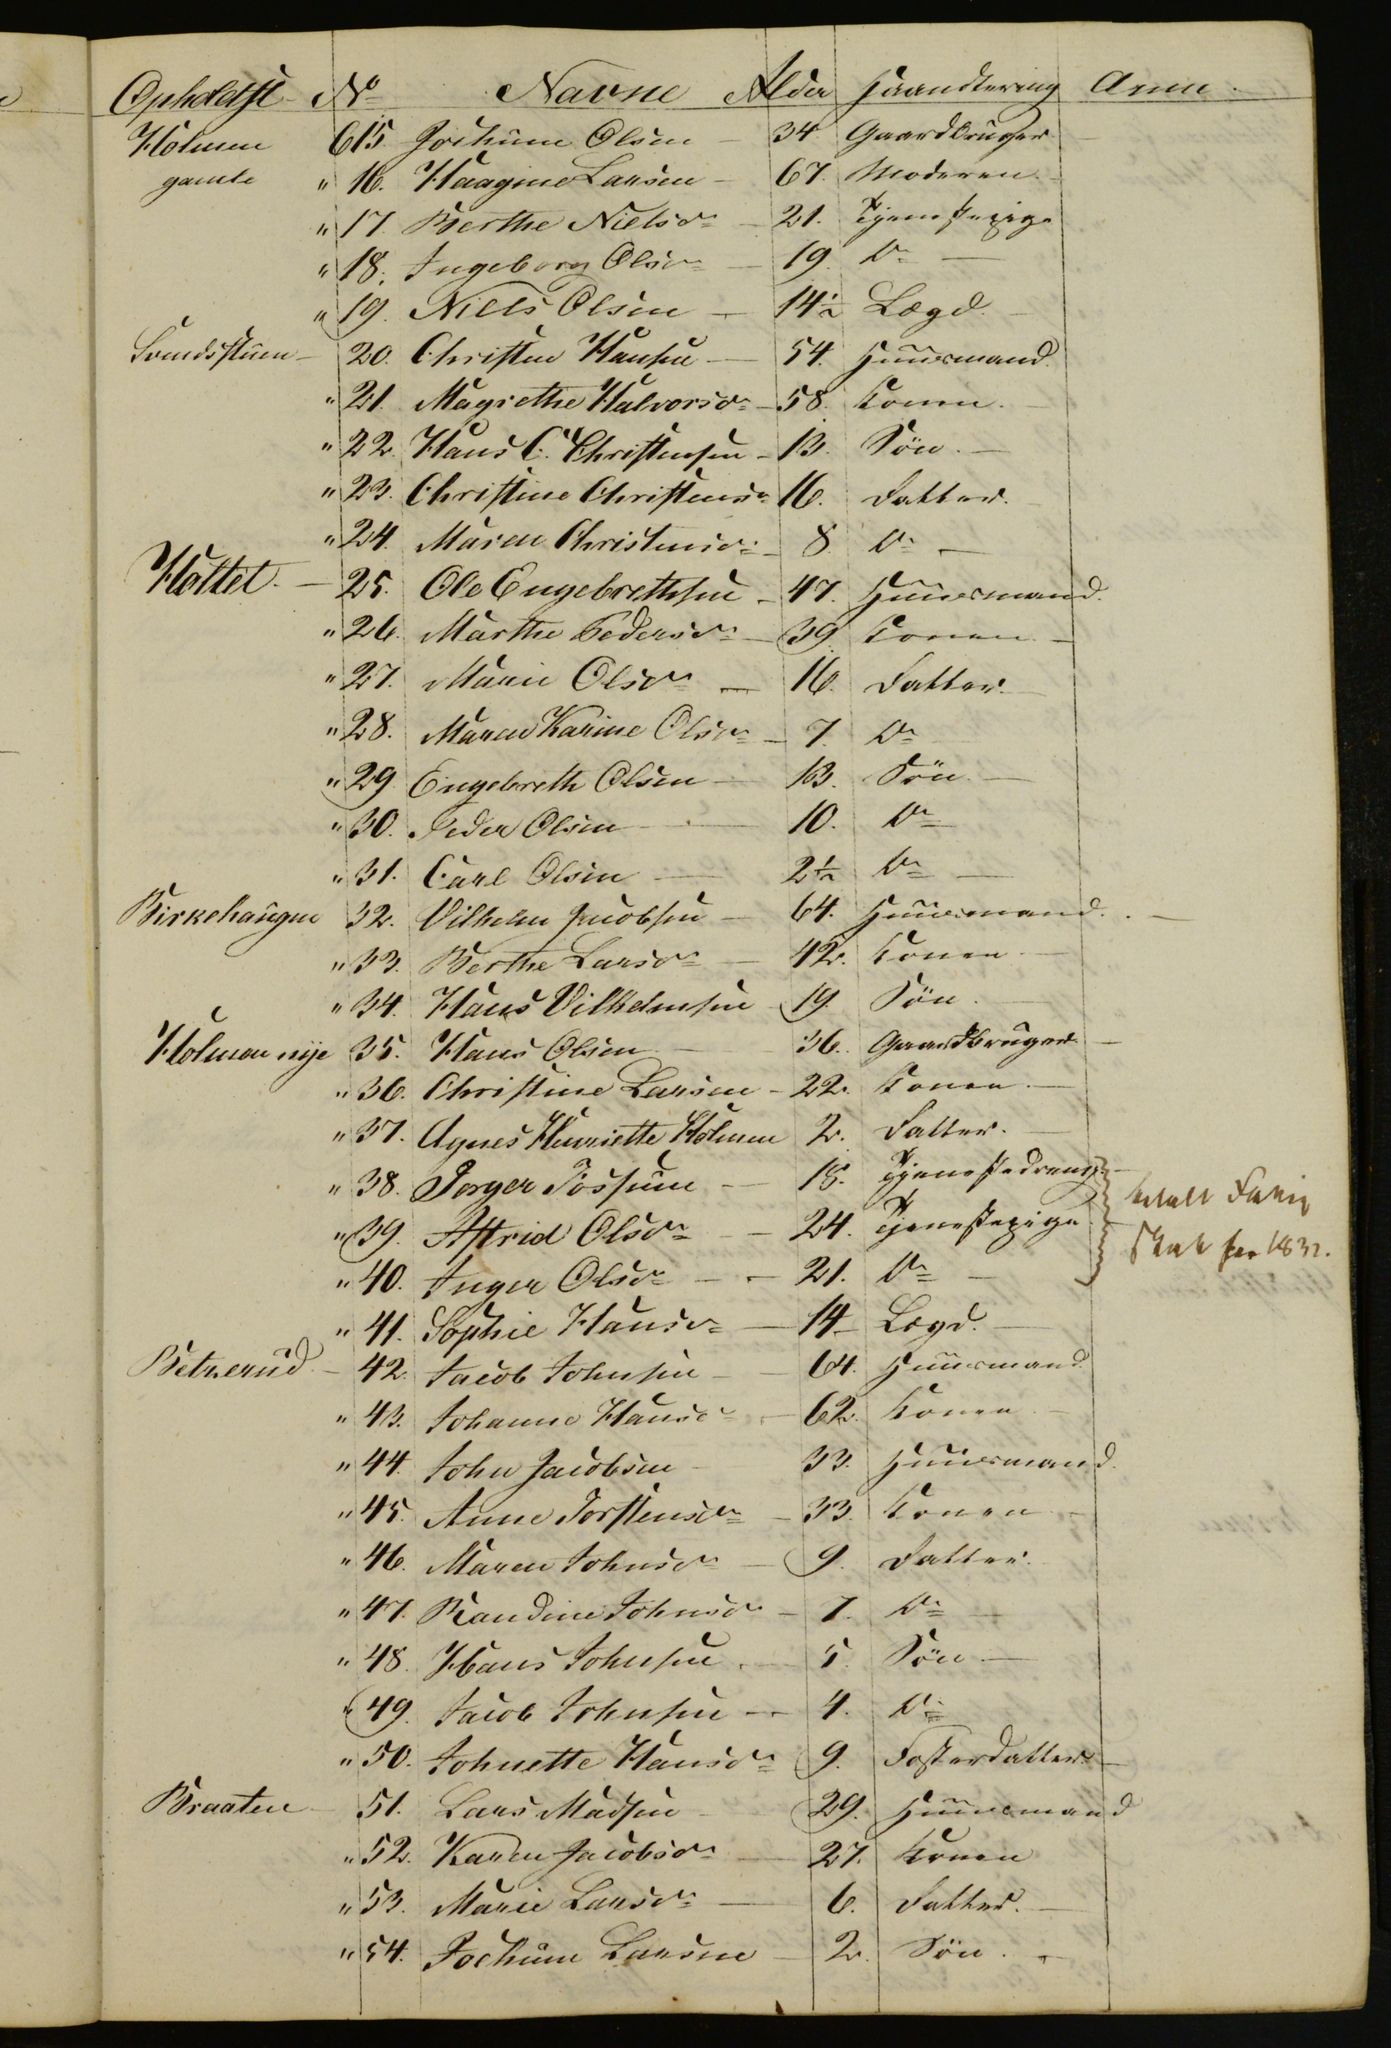 Opholdst No Navne Alder Haandtering Anm.
Holmen 615 Jochum Olsen - 34 Gaardbruger
gamle " 16. Haagine Larsen - 67. Moderen.
" 17. Berthe Nielsdr - 21. Tjenestepige
" 18. Ingeborg Olsdr - 19. Do -
" 19. Niels Olsen - 14½ Lægd. -
Svendsstuen - 20. Christen Hansen - 54. Huusmand.
" 21. Magrethe Halvorsdr - 58. Konen. -
" 22. Hans C. Christensen - 13. Sön. -
" 23. Christine Christensdr 16. Datter. -
" 24. Maren Christensdr - 8. Do -
Hottet. - 25. Ole Engebrethsen - 47. Huusmand.
" 26. Marthe Pedersdr - 39 Konen -
" 27. Marie Olsdr - 16. Datter. -
" 28. Maren Karine Olsdr - 7. Do
" 29. Engebreth Olsen - 13. Sön. -
" 30. Peder Olsen - 10. Do
" 31. Carl Olsen - 2½ Do -
Birkehaugen 32. Vilhelm Jacobsen - 64. Huusmand. -
" 33. Berthe Larsdr - 42. Konen -
" 34. Hans Vilhelmsen 19. Sön. -
Holmen nye 35. Hans Olsen - 36. Gaardbruger -
" 36. Christine Larsen - 22. Konen -
" 37. Agnes Henriette Holmen 2. Datter. -
" 38. Torger Fossum - 18. Tjenestedreng -
" 39. Astrid Olsdr - 24. Tjenestepige
" 40. Inger Olsdr - 21. Do -
betalt
Skat for 1832.
" 41. Sophie Hansdr - 14 - Lægd. -
Betzerud - 42. Jacob Johnsen - 64. Huusmand
" 43. Johanne Hansdr - 62. Konen -
" 44. John Jacobsen - 33. Huusmand.
" 45. Anne Torstensdr - 33. Konen -
" 46. Maren Johnsdr - 9. Datter.
" 47. Randine Johnsdr - 7. Do -
" 48. Hans Johnsen - 5. Sön -
" 49. Jacob Johnsen - 4. Do
" 50. Johnette Hansdr 9. Fosterdatter -
Braaten - 51. Lars Madsen - 29. Huusmand
" 52. Karen Jacobsdr - 27. Konen
" 53. Marie Larsdr - 6. Datter. -
" 54. Jochum Larsen - 2. Sön. -